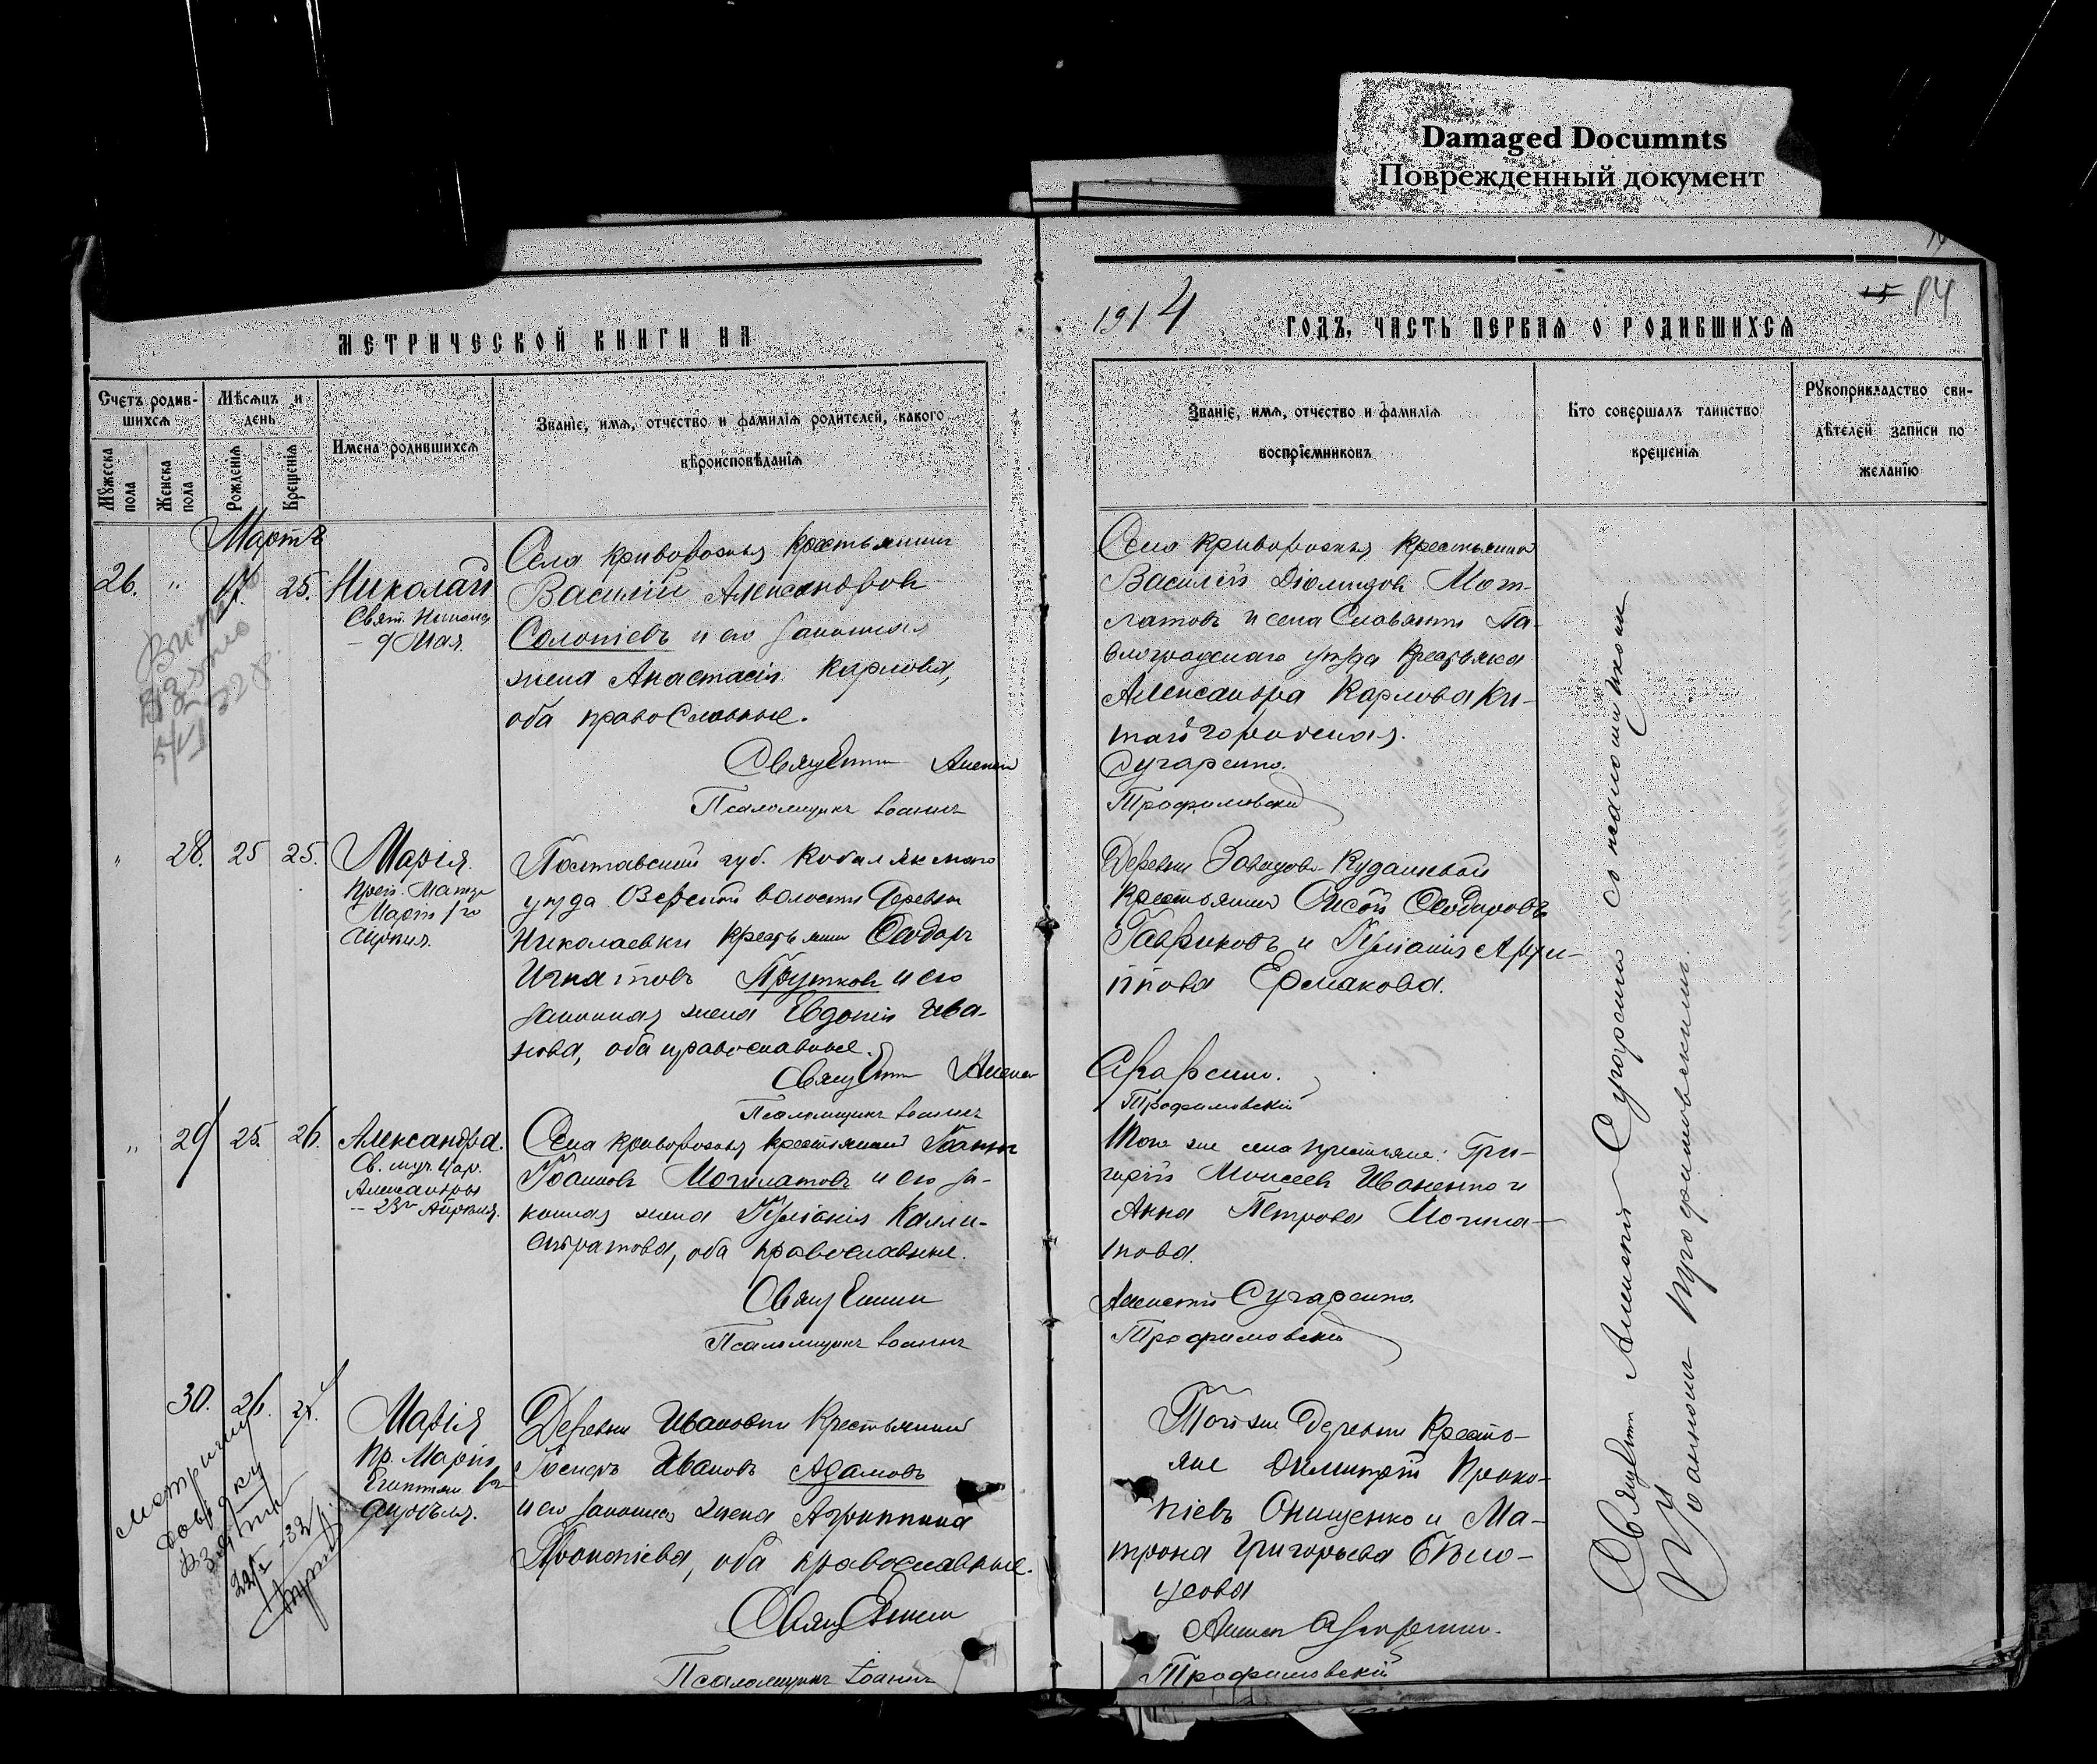 Damaged Documnts
Поврежденный документ
15 84
МЕТРИЧЕСКОЙ КНИГИ НА
1914 ГОДЪ, ЧАСТЬ ПЕРВАЯ О РОДИВШИХСЯ
Счетъ родив-
шихся
Мужеска
пола
Женска
пола
Мѣсяцъ и
день
Рожденія
Крещенія
Имена родившихся
Званіе, имя, отчество и фамилія родителей, какого
вѣроисповѣданія
Званіе, имя, отчество и фамилія
воспріемниковъ
Кто совершалъ таинство
крещенія
Рукоприкладство сви-
дѣтелей записи по
желанію
Мартъ
26. " 17. 25.
Николай
Свят. Николая
- 9 Мая.
Села Криворожья крестьянинъ
Василій Александровъ
Солопіевъ и его законная
жена Анастасія Карпова,
оба православные.
Священникъ Алексій
Псаломщикъ Іоаннъ
Села Криворожья крестьянинъ
Василій Діомидовъ
и села Славянки Па-
влоградскаго уѣзда крестьянка
Александра Карпова Ки-
тайгородская.
Трофимовскій
" 28. 25 25.
Марія.
Преп. Матери
Маріи 1го
Апрѣля.
Полтавской губ. Кобелякскаго
уѣзда волости деревни
Николаевки крестьянинъ Ѳеодоръ
Игнатовъ Прутковъ и его
законная жена Евдокія Ива-
нова, оба православные.
Священникъ Алексій
Псаломщикъ Іоаннъ
Деревни
крестьянинъ Ѳеодоровъ
Гавриковъ и Іуліанія Агри-
ппова Ермакова.
Трофимовскій
" 29 25. 26.
Александра.
Св. муч. Цар.
Александры
- 23го Апрѣля.
Села Криворожья крестьянинъ Іоаннъ
Іоанновъ Могилатовъ и его за-
конная жена Іуліанія Калли-
стратова, оба православные.
Священникъ
Псаломщикъ Іоаннъ
Того же села крестьяне: Гри-
горій Моисеевъ Иваненко и
Анна Петрова Могила-
това.
Алексій
Трофимовскій
30. 26.
Марія
Пр. Маріи
Египтян. 1го
Апрѣля.
Деревни Ивановки крестьянинъ
Іосифъ Ивановъ Адамовъ
и его законная жена Агриппина
Прокопіева, оба православные.
Священникъ
Псаломщикъ Іоаннъ
Той же деревни кресть-
яне Димитрій Проко-
піевъ Онищенко и Ма-
трона Григорьева Бѣло-
усова
Алексій
Трофимовскій
Священникъ Алексій со псаломщикомъ
Іоанномъ Трофимовскимъ.